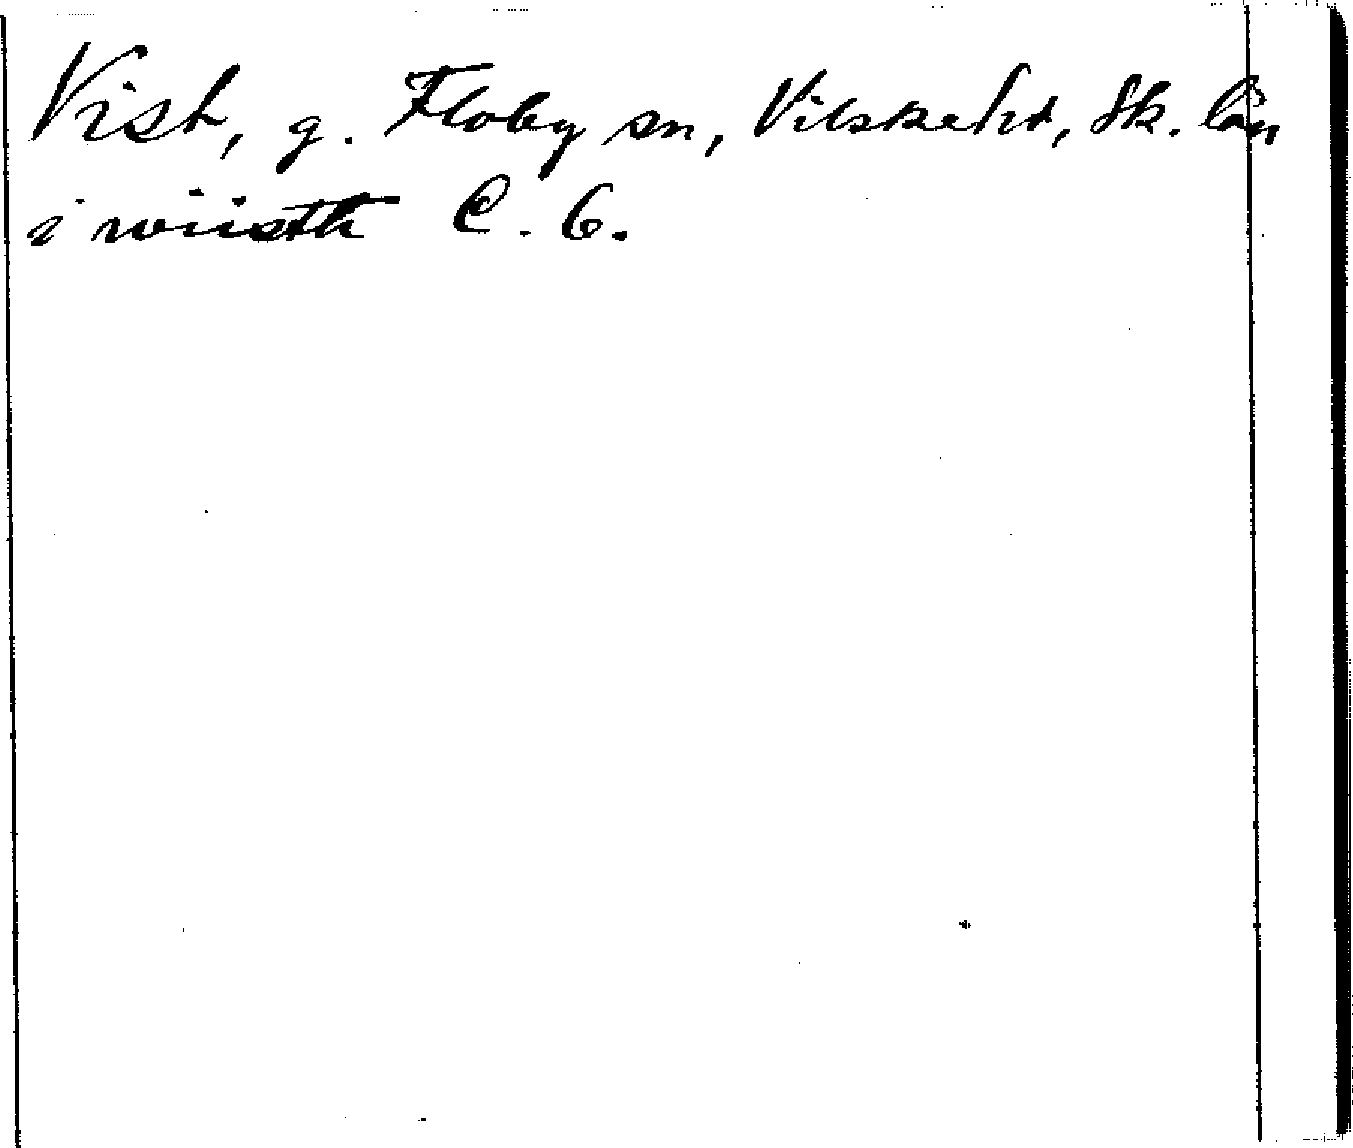 Vist, g. Floby sn, Vilske hd, Sk. län
i wiisth C. 6.